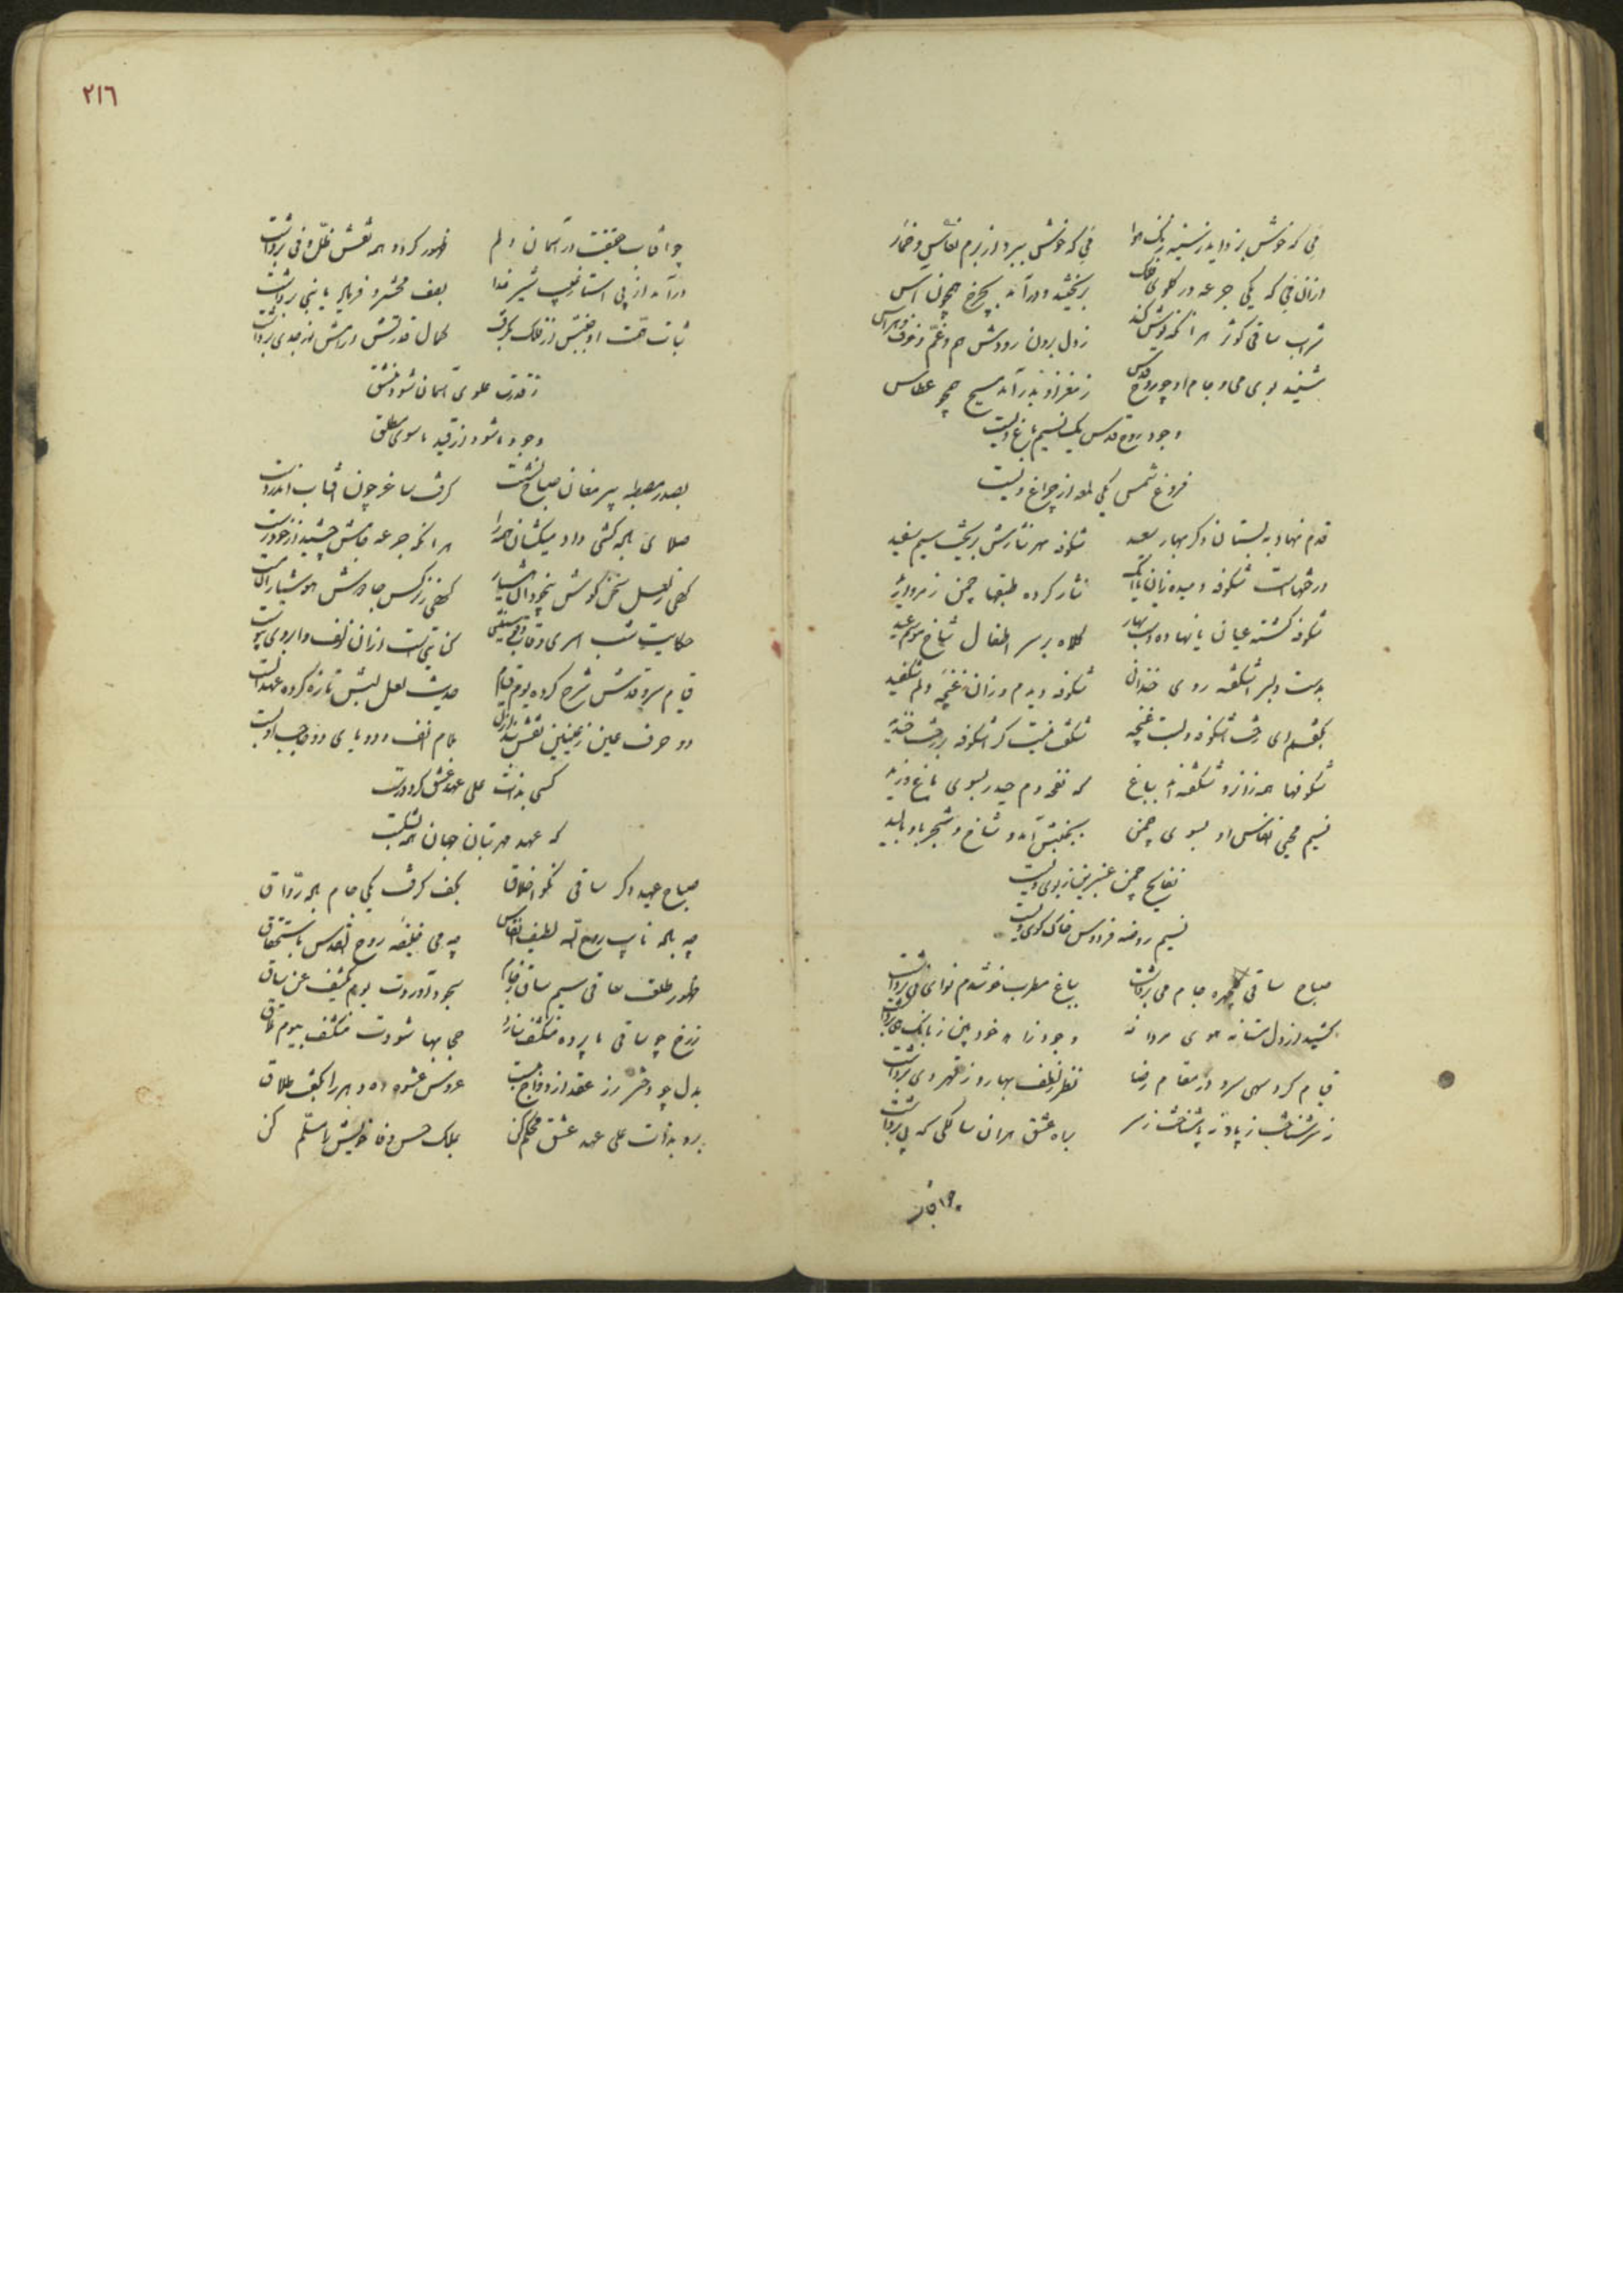 می که خوش بزداید ز سینه زنک هوا می که خوش ببرد از برم نعاس و خمار
ازان می که یکی جرعه در کلوی فلک بریخت و درآمد بچرخ همچون آس
شراب ساقی کوثر هر آنکه نوش کند ز دل برون رودش هم و غم و خوف و هراس
شنید بوی می و جام او چو روح قدس ز مغز او بدر آمد مسیح همچو عطاس
وجود روح قدس یک نسیم باغ ولیست
فروغ شمس یکی لمعه از چراغ ولیست
قدم نهاد به بستان دکر بهار سعید شکوفه بهر نثارش بریخت سیم سفید
درختهاست شکوفه دمیده نثار کرده طبقها چمن ز مروارید
شکوفه کشته عیان یا نهاده دست بهار کلاه بر سر اطفال شاخ موسم عید
بدست دلبر اشکفته روی خندانی شکوفه دیدم و زان غنچه دلم شکفید
بکفتم ای رخت اشکوفه و لبت غنچه شکفت نیست کر اشکوفه بر رخت خندید
شکوفها همه زانرو شکفته اند بباغ که نفحه دم حیدر بسوی باغ وزید
نسیم محیی انفاس او بسوی چمن بجنبش آمد و شاخ و شجر بباد بالید
نفایح چمن عنبرین ز بوی ولیست
نسیم روضه فردوس خاک کوی ولیست
صباح ساقی کلچهره جام می برداشت بباغ مطرب خوشدم نوای نی برداشت
کشید از دل مستانه هوی مردانه وجود زاهد خودبین ز بانک هی برداشت
قیام کرد سهی سرو در مقام رضا نظر بلطف بهار و ز قهر دی برداشت
ز سر شناخت ز پا و نه پا شناخت ز سر براه عشق هر آن سالکی که پی برداشت
چو آفتاب
٢١٦
چو آفتاب حقیقت در آسمان دلم ظهور کرد و همه نقش ظل و فی برداشت
درآمد از پی استار غیب شیر خدا بعف محشر و فریاد یا بنی برداشت
ثبات همت او جنبش از فلک بکرفت کمال قدرتش ورامش از جدی برداشت
ز قدرت علوی آسمان شود منشق
وجود ما شود از قید ماسوی مطلق
بصدر مصطبه پیر مغان صباح نشست کرفت ساغر چون آفتاب اندر دست
صلای باده کشی داد میکشان همه را هر آنکه جرعه جامش چشید از خود رست
کهی ز لعل سخن کوش بیخودان هشیار کهی ز نرکس جادوش هوشیاران مست
حکایت شب اسری و قاب قوسینی کنایتی است ازان زلف و ابروی پیوست
قیام سرو قدش شرح کرده یوم قیام حدیث لعل لبش تازه کرده عهد الست
دو حرف عین ز عینین نقش بند ازل تمام الف و دو یای دو حاجب او بست
کسی بذات علی عهد عشق کرد درست
که عهد مهر بتان جهان همه بشکست
صباح عید دکر ساقی نکو اخلاق بکف کرفت یکی جام باده رواق
چه باده ناب روح اله لطیف انفاس چه می خلیفه روح القدس باستحقاق
ظهور طلعت ساقی سیم ساق سجود آوردت یوم یکشف عن ساق
ز رخ چو ساقی ما پرده منکشف سازد حجابها شودت منکشف بیوم تلاق
بدل چو دختر رز عقد ازدواج ببست عروس عشوه ده دهر را بکفت طلاق
برو بذات علی عهد عشق محکم کن بملک حسن وفا خویش را مسلم کن